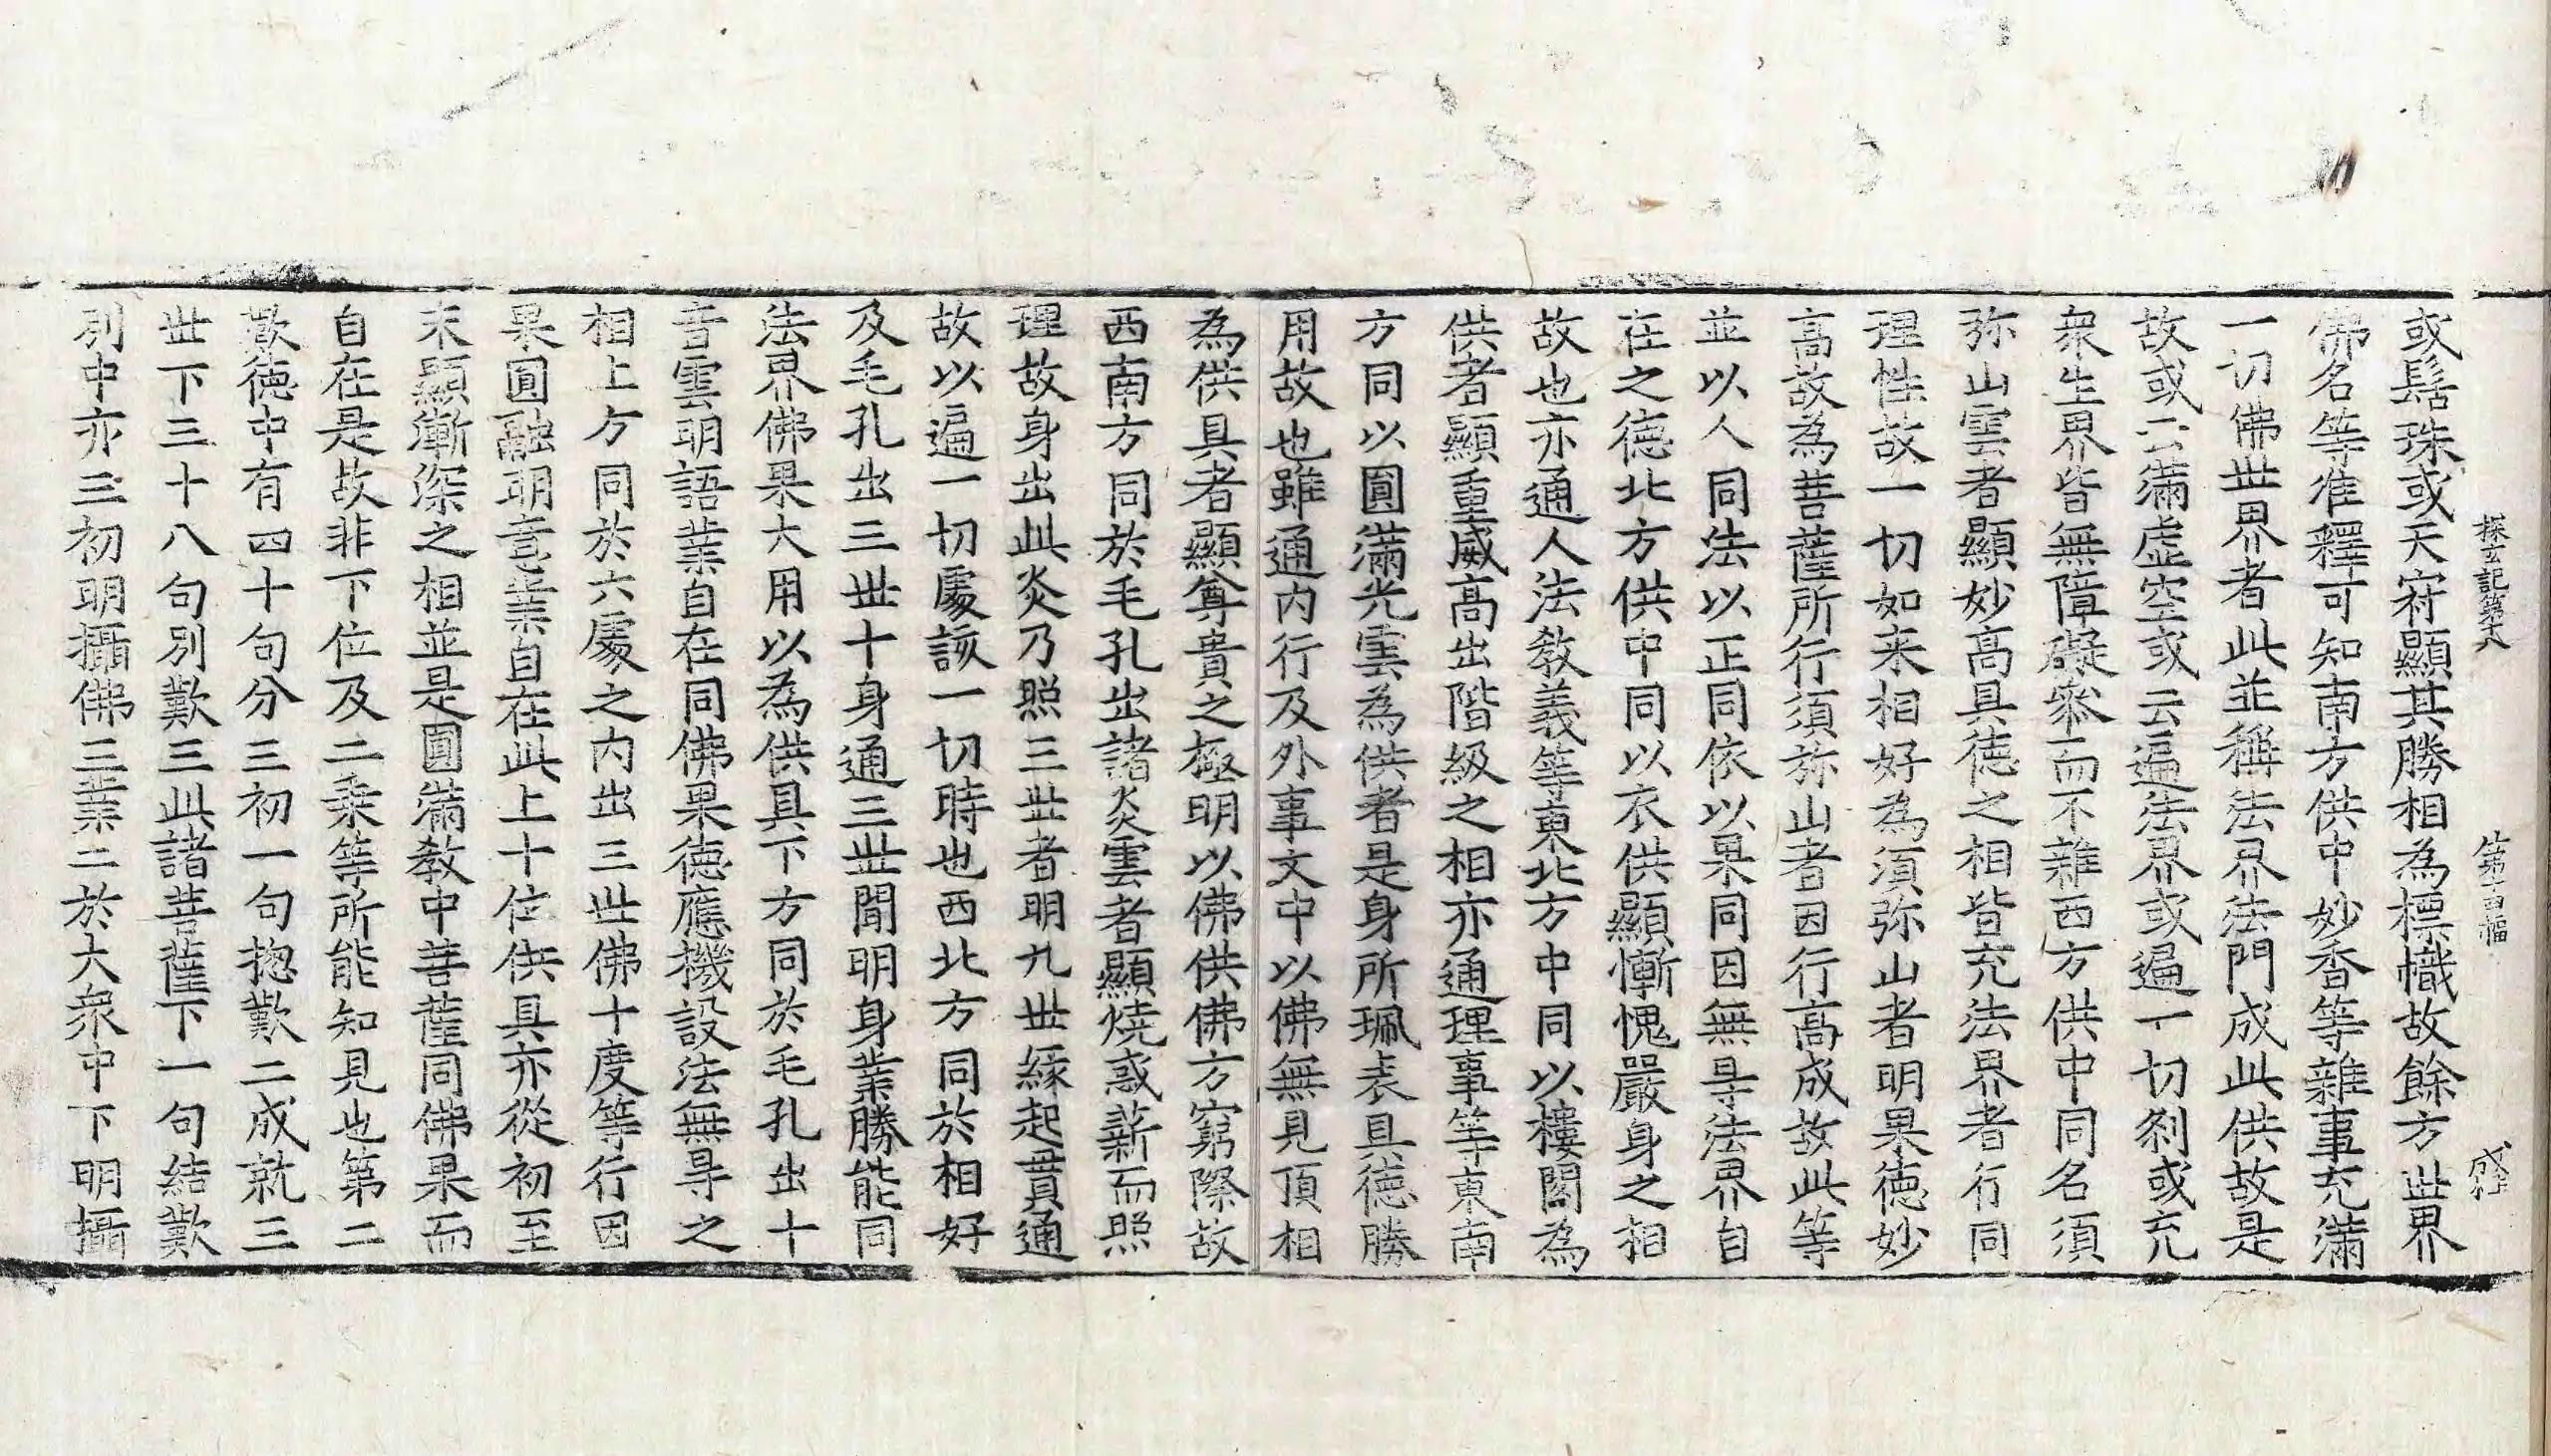 探玄記第十八 第十四幅 成柱
或髻珠或天㝛顯其勝相為標幟故餘方丗界
佛名等准釋可知南方供中妙香等雜事充滿
一切佛丗界者此並稱法界法門成此供故是
故或云滿虛空或云遍法界或遍一切刹或充
衆生界皆無障礙叅而不雜西方供中同名須
弥山雲者顯妙高具徳之相皆充法界者行同
理性故一切如来相好為須弥山者明果徳妙
高故為菩薩所行須弥山者因行高成故此等
並以人同法以正同依以果同因無㝵法界自
在之徳北方供中同以衣供顯慚愧嚴身之相
故也亦通人法教義等東北方中同以樓閣為
供者顯重威高出階級之相亦通理事等東南
方同以圓滿光雲為供者是身所珮表具徳勝
用故也雖通内行及外事文中以佛無見頂相
為供具者顯尊貴之極明以佛供佛方窮際故
西南方同於毛孔出諸炎雲者顯燒惑薪而照
理故身出此炎乃照三丗者明九丗緣起貫通
故以遍一切處該一切時也西北方同於相好
及毛孔出三丗十身通三丗間明身業勝能同
法界佛果大用以為供具下方同於毛孔出十
音雲明語業自在同佛果徳應機設法無㝵之
相上方同於六處之内出三丗佛十度等行因
果圓融明意業自在此上十位供具亦從初至
末顯漸深之相並是圓滿教中菩薩同佛果而
自在是故非下位及二乗等所能知見也第二
歎徳中有四十句分三初一句揔歎二成就三
丗下三十八句別歎三此諸菩薩下一句結歎
別中亦三初明攝佛三業二於大衆中下明攝